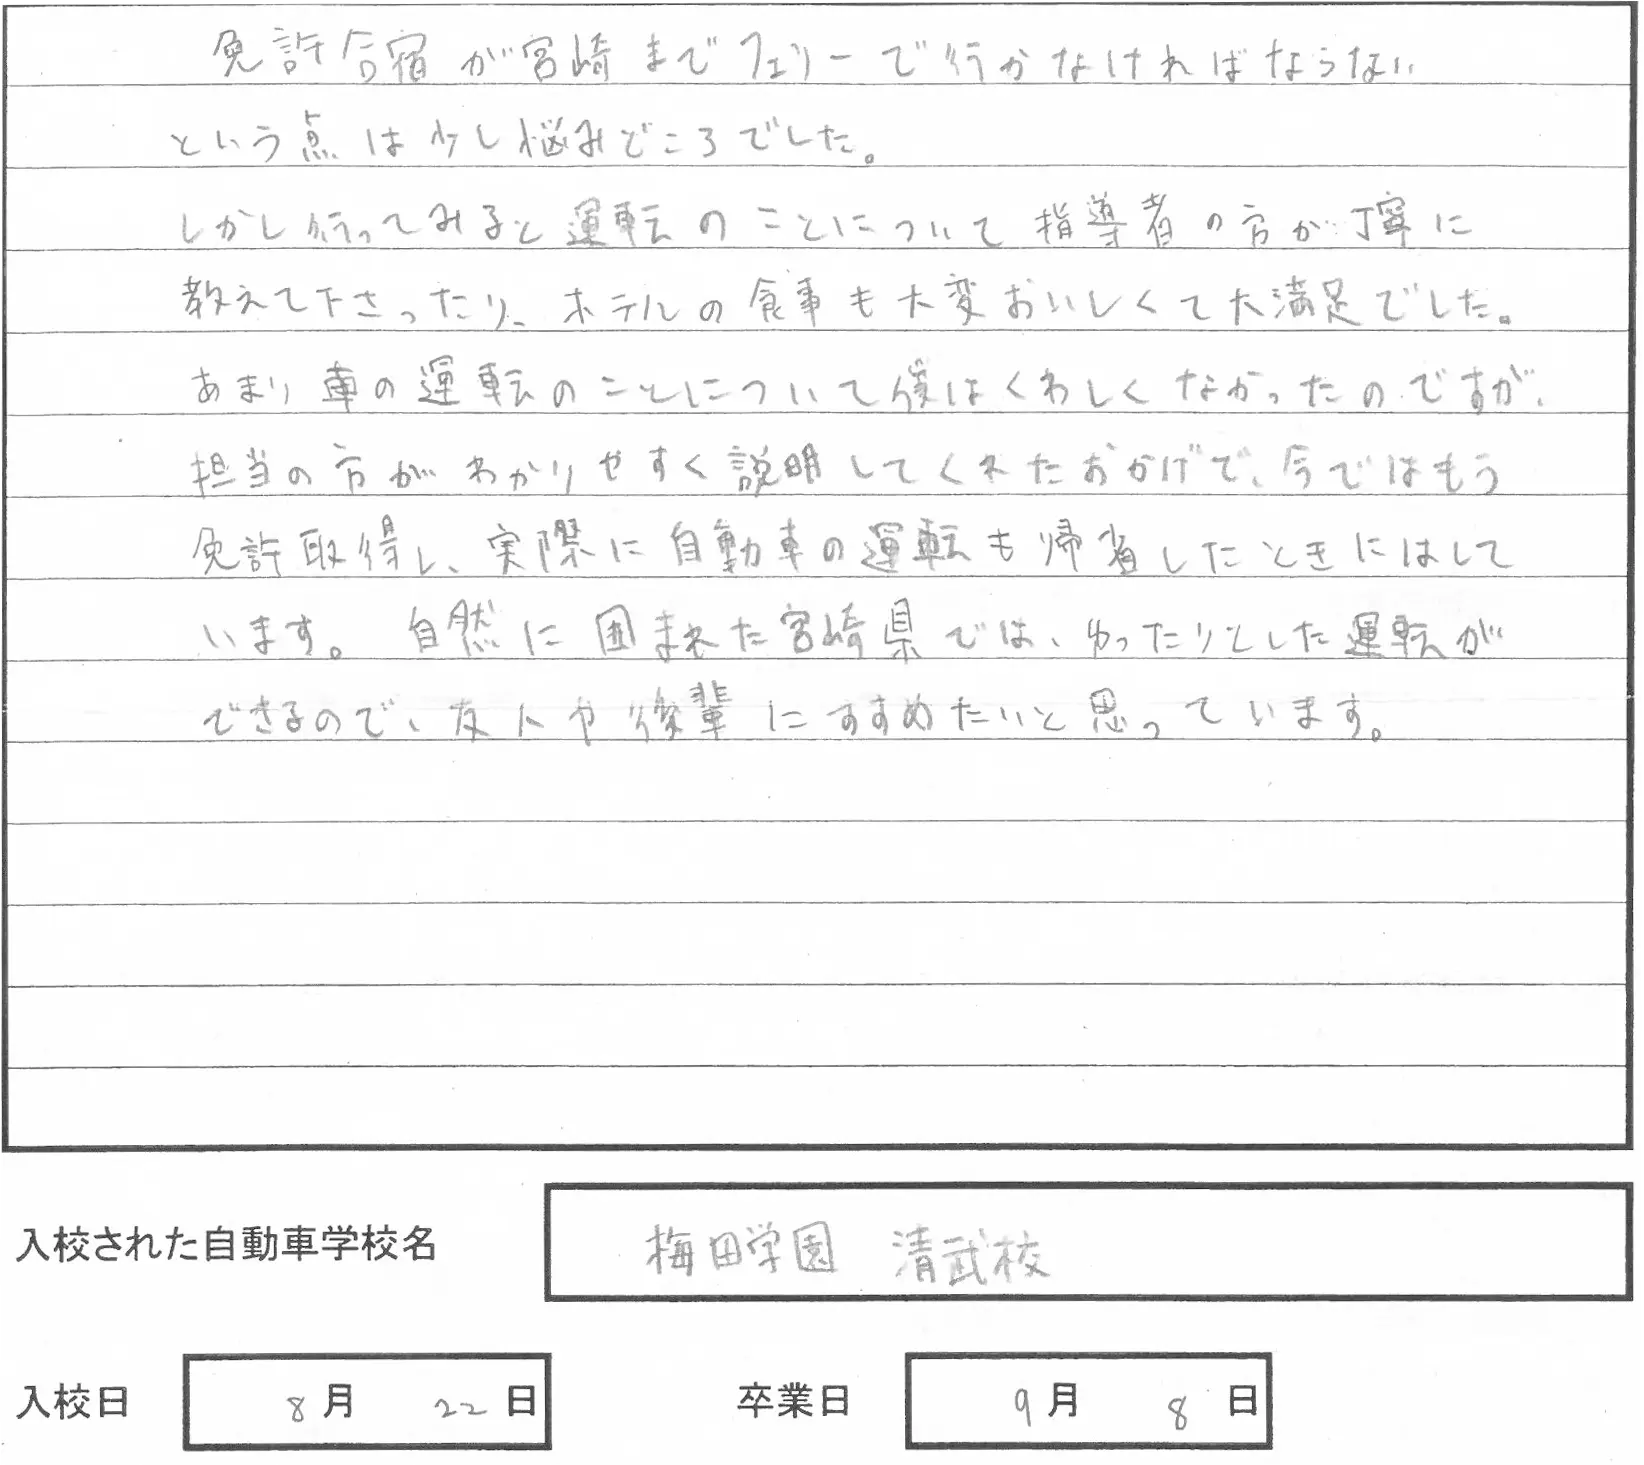 免許合宿が宮崎までフェリーで行かなければならない
という点は少し悩みどころでした。
しかし行ってみると運転のことについて指導者の方が丁寧に
教えて下さったり、ホテルの食事も大変おいしくて大満足でした。
あまり車の運転のことについて僕はくわしくなかったのですが、
担当の方がわかりやすく説明してくれたおかげで、今ではもう
免許取得し、実際に自動車の運転も帰省したときにはして
います。 自然に囲まれた宮崎県では、ゆったりとした運転が
できるので、友人や後輩にすすめたいと思っています。
入校された自動車学校名 梅田学園 清武校
入校日 8月 22日 卒業日 9月 8日